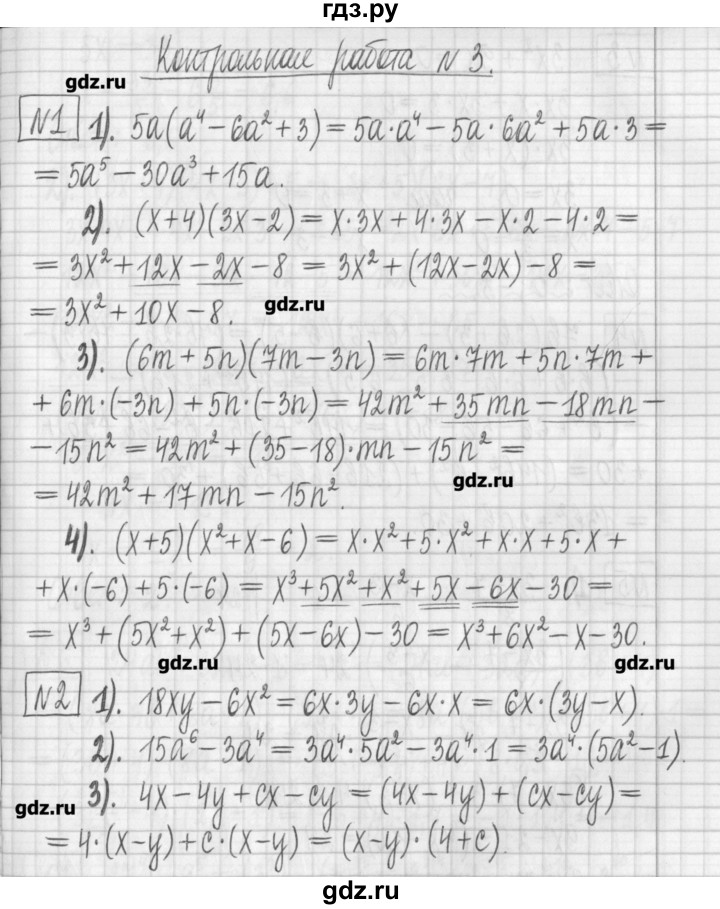 гдз.ру
Контрольная работа N 3.
gdz.ru
N1 1). 5a(a⁴ – 6a² + 3) = 5a·a⁴ – 5a·6a² + 5a·3 =
= 5a⁵ – 30a³ + 15a.
2). (x+4)(3x–2) = x·3x + 4·3x – x·2 – 4·2 =
= 3x² + 12x – 2x – 8 = 3x² + (12x–2x) – 8 =
= 3x² + 10x – 8.
gdz.ru
3). (6m + 5n)(7m – 3n) = 6m·7m + 5n·7m +
+ 6m·(–3n) + 5n·(–3n) = 42m² + 35mn – 18mn –
– 15n² = 42m² + (35–18)·mn – 15n² =
gdz.ru
= 42m² + 17mn – 15n².
4). (x+5)(x²+x–6) = x·x² + 5·x² + x·x + 5·x +
+ x·(–6) + 5·(–6) = x³ + 5x² + x² + 5x – 6x – 30 =
= x³ + (5x² + x²) + (5x – 6x) – 30 = x³ + 6x² – x – 30.
gdz.ru
gdz.ru
N2 1). 18xy – 6x² = 6x·3y – 6x·x = 6x·(3y–x).
2). 15a⁶ – 3a⁴ = 3a⁴·5a² – 3a⁴·1 = 3a⁴·(5a²–1).
3). 4x – 4y + cx – cy = (4x–4y) + (cx–cy) =
gdz.ru
= 4·(x–y) + c·(x–y) = (x–y)·(4+c).
gdz.ru